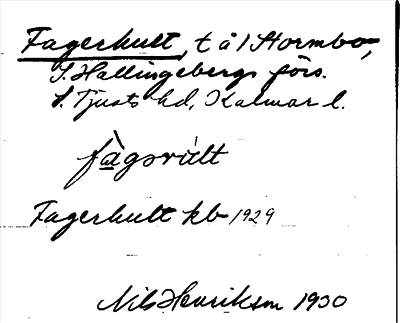 Fagerhult, t å 1 Stormbo,
S. Hallingebergs förs.
S. Tjusts hd, Kalmar l.
fàgərúlt
Fagerhult kb 1929
Nils Henriksson 1930